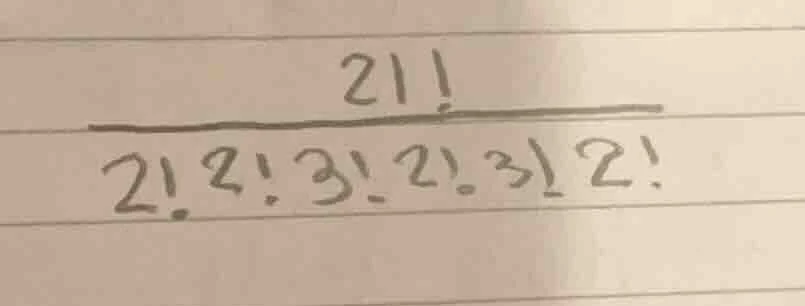 21!
2! 2! 3! 2! 3! 2!